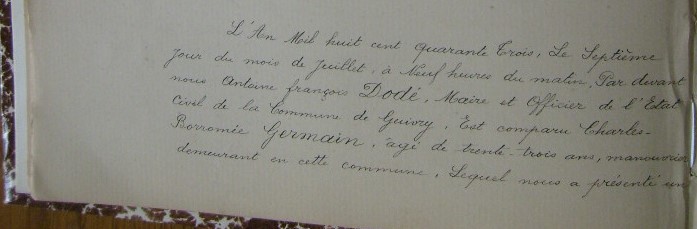 L'An Mil huit cent quarante Trois, Le Septième
jour du mois de Juillet, à Neuf heures du matin, Par devant
nous Antoine françois Dodé, Maire et Officier de l'Etat
Civil de la Commune de Guivry, Est comparu Charles-
Borromée Germain, âgé de trente-trois ans, manouvrier
demeurant en cette commune, Lequel nous a présenté un